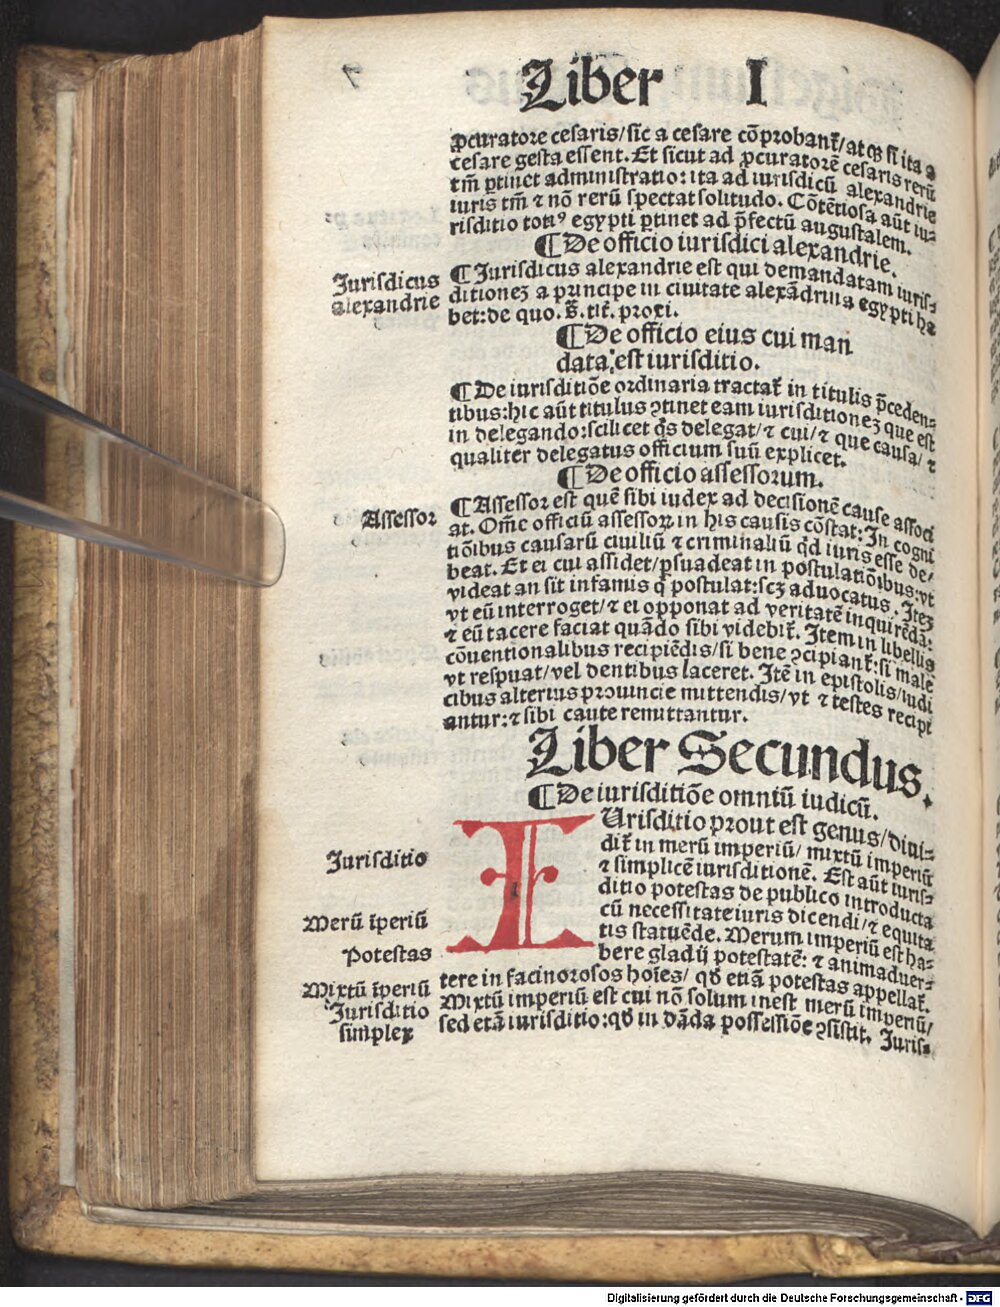 Liber I
ꝓcuratore cesaris/sic a cesare cōprobant̃/atqꝫ si ita a
cesare gesta essent. Et sicut ad ꝓcuratorē cesaris rerū
tm̄ ꝑtinet administratio: ita ad iurisdicū alexandrie
iuris tm̄ ⁊ nō rerū spectat solitudo. Cōtētiosa aūt iu⸗
risditio totiꝰ egypti ꝑtinet ad p̄fectū augustalem.
¶De officio iurisdici alexandrie.
Jurisdicus
alexandrie
¶Jurisdicus alexandrie est qui demandatam iuris⸗
ditioneꝫ a principe in ciuitate alexādrina egypti ha
bet: de quo. s̄. tit̃. proxi.
¶De officio eius cui man
data est iurisditio.
¶De iurisditiōe ordinaria tractat̃ in titulis p̄ceden⸗
tibus: hic aūt titulus ↄtinet eam iurisditioneꝫ que est
in delegando: scilicet qͥs delegat/⁊ cui/⁊ que causa/⁊
qualiter delegatus officium suū explicet.
¶De officio assessorum.
Assessor
¶Assessor est quē sibi iudex ad decisionē cause associ
at. Om̄e officiū assessoꝝ in his causis cōstat: In cogni
tiōibus causarū ciuiliū ⁊ criminaliū qd̄ iuris esse de/
beat. Et ei cui assidet/ꝑsuadeat in postulatiōibus: vt
videat an sit infamis q̇ postulat: scꝫ aduocatus. Iteꝫ
vt eū interroget/⁊ ei opponat ad veritatē inquirēdā:
⁊ eū tacere faciat quādo sibi videbit̃. Item in libellis
cōuentionalibus recipiēdis/si bene ↄcipiant̃: si male
vt respuat/vel dentibus laceret. Itē in epistolis/iudi
cibus alterius prouincie mittendis/vt ⁊ testes recipi
antur: ⁊ sibi caute remittantur.
Liber Secundus.
¶De iurisditiōe omniū iudicū.
Jurisditio
IUrisditio prout est genus/diui⸗
dit̃ in merū imperiū/ mixtū imperiū
⁊ simplicē iurisditionē. Est aūt iuris⸗
ditio potestas de publico introducta
cū necessitate iuris dicendi/⁊ equita
Merū īperiū
tis statuēde. Merum imperiū est ha⸗
Potestas
bere gladij potestatē: ⁊ animaduer⸗
tere in facinorosos hoīes/ qd̄ etiā potestas appellat̃.
Mixtū īperiū
Mixtū imperiū est cui nō solum inest merū imperiū/
Jurisditio
simplex
sed etā iurisditio: qd̄ in dāda possessiōe ↄsistit. Juris⸗
Digitalisierung gefördert durch die Deutsche Forschungsgemeinschaft - DFG